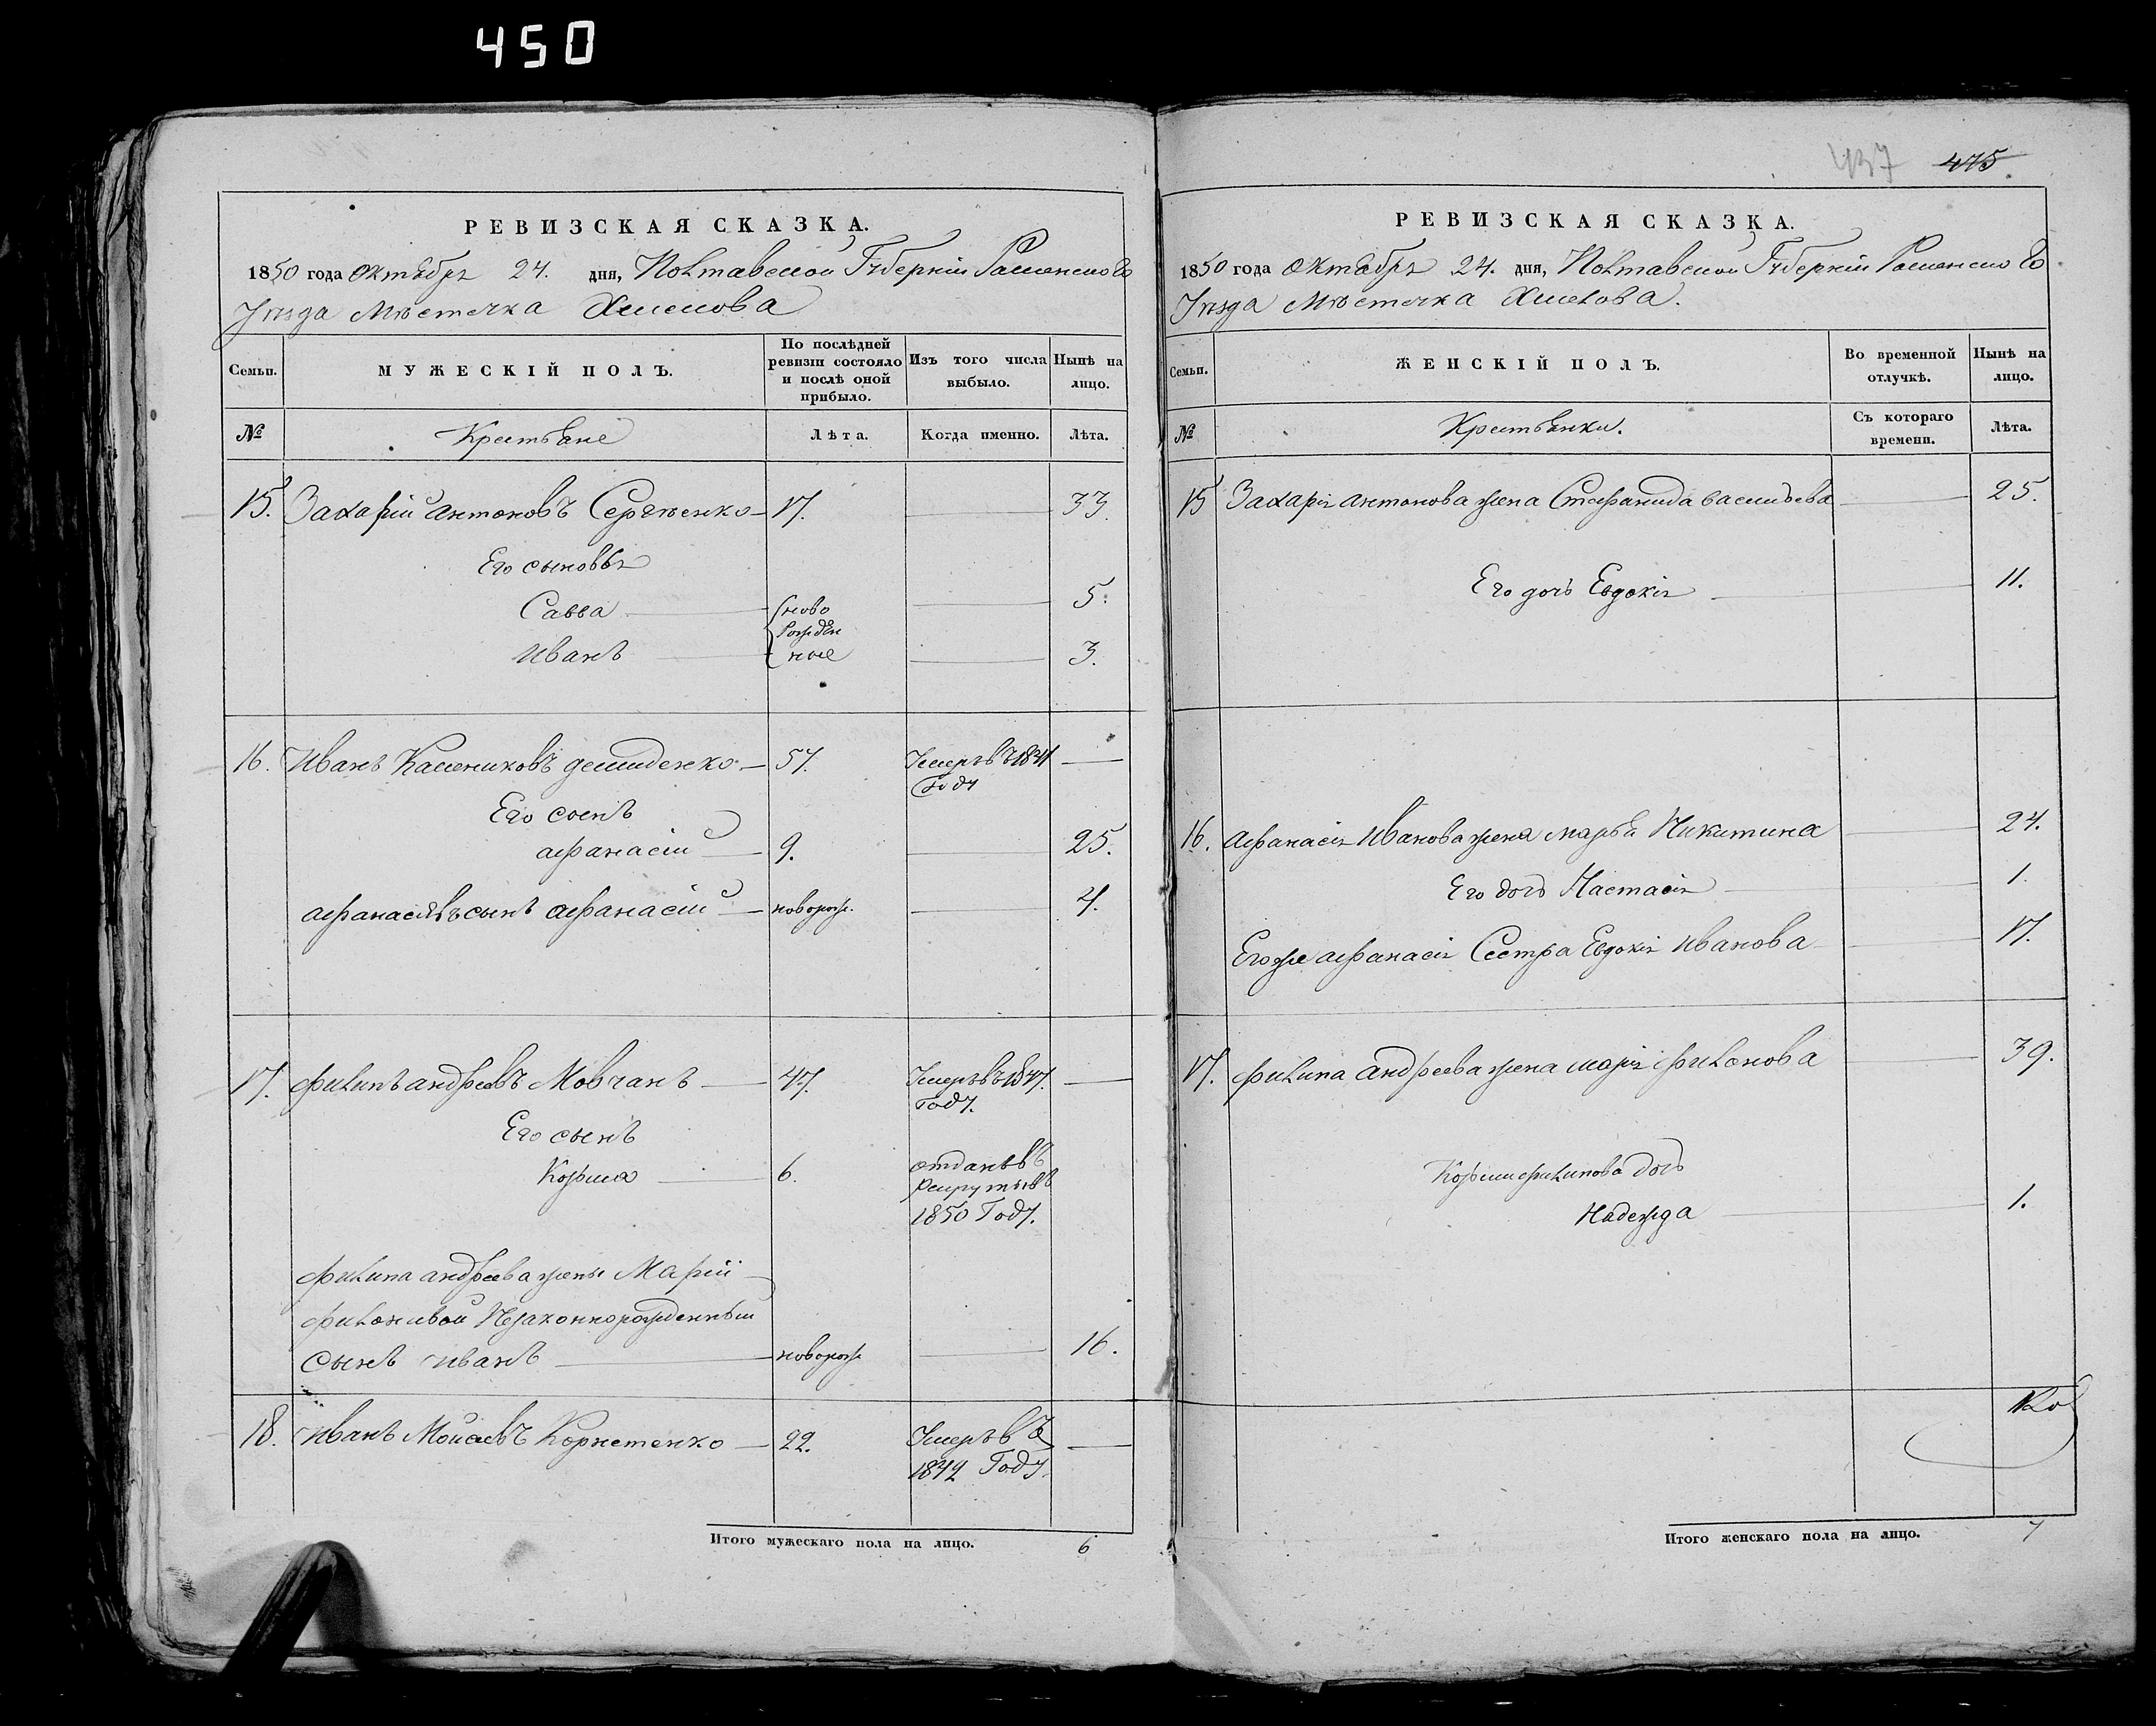 450
РЕВИЗСКАЯ СКАЗКА.
1850 года Октября 24. дня, Полтавской Губерніи Роменского
Уезда Местечка Хмелова
Семьи.
МУЖЕСКІЙ ПОЛЪ.
По послѣдней ревизіи состояло и послѣ оной прибыло.
Изъ того числа выбыло.
Нынѣ на лицо.
№
Крестьяне
Лѣта.
Когда именно.
Лѣта.
15. Захарій Антоновъ Сергѣенко 17. 33.
Его сыновья
Савва ново 5.
рожден
Иванъ ные 3.
16. Иванъ Калениковъ Демиденко 57. Умеръ въ 1841 году
Его сынъ
Афанасій 9. 25.
Афанасіевъ сынъ Афанасій новорож. 4.
17. Филипъ Андреевъ Мовчанъ 47. Умеръ въ 1847. году.
Его сынъ
Корнила 6. отданъ въ
рекруты въ
1850 Году.
Филипа Андреева жены Маріи
Филоновой Незаконнорожденный
Сынъ Иванъ новорож 16.
18. Иванъ Мойсеевъ Корнетенко 22. Умеръ въ
1842 Году.
Итого мужескаго пола на лицо. 6
437 475.
РЕВИЗСКАЯ СКАЗКА.
1850 года Октября 24. дня, Полтавской Губерніи Роменского
Уезда Местечка Хмелова.
Семьи.
ЖЕНСКІЙ ПОЛЪ.
Во временной отлучкѣ.
Нынѣ на лицо.
№
Крестьянки.
Съ котораго времени.
Лѣта.
15 Захарія Антонова жена Стефанида Васильева 25.
Его дочь Евдокія 11.
16. Афанасія Иванова жена Марья Никитина 24.
Его дочь Настасія 1.
Его же Афанасія Сестра Евдокія Иванова 17.
17. Филипа Андреева жена Марія Филонова 39.
Филипова дочь
Надежда 1.
Итого женскаго пола на лицо. 7